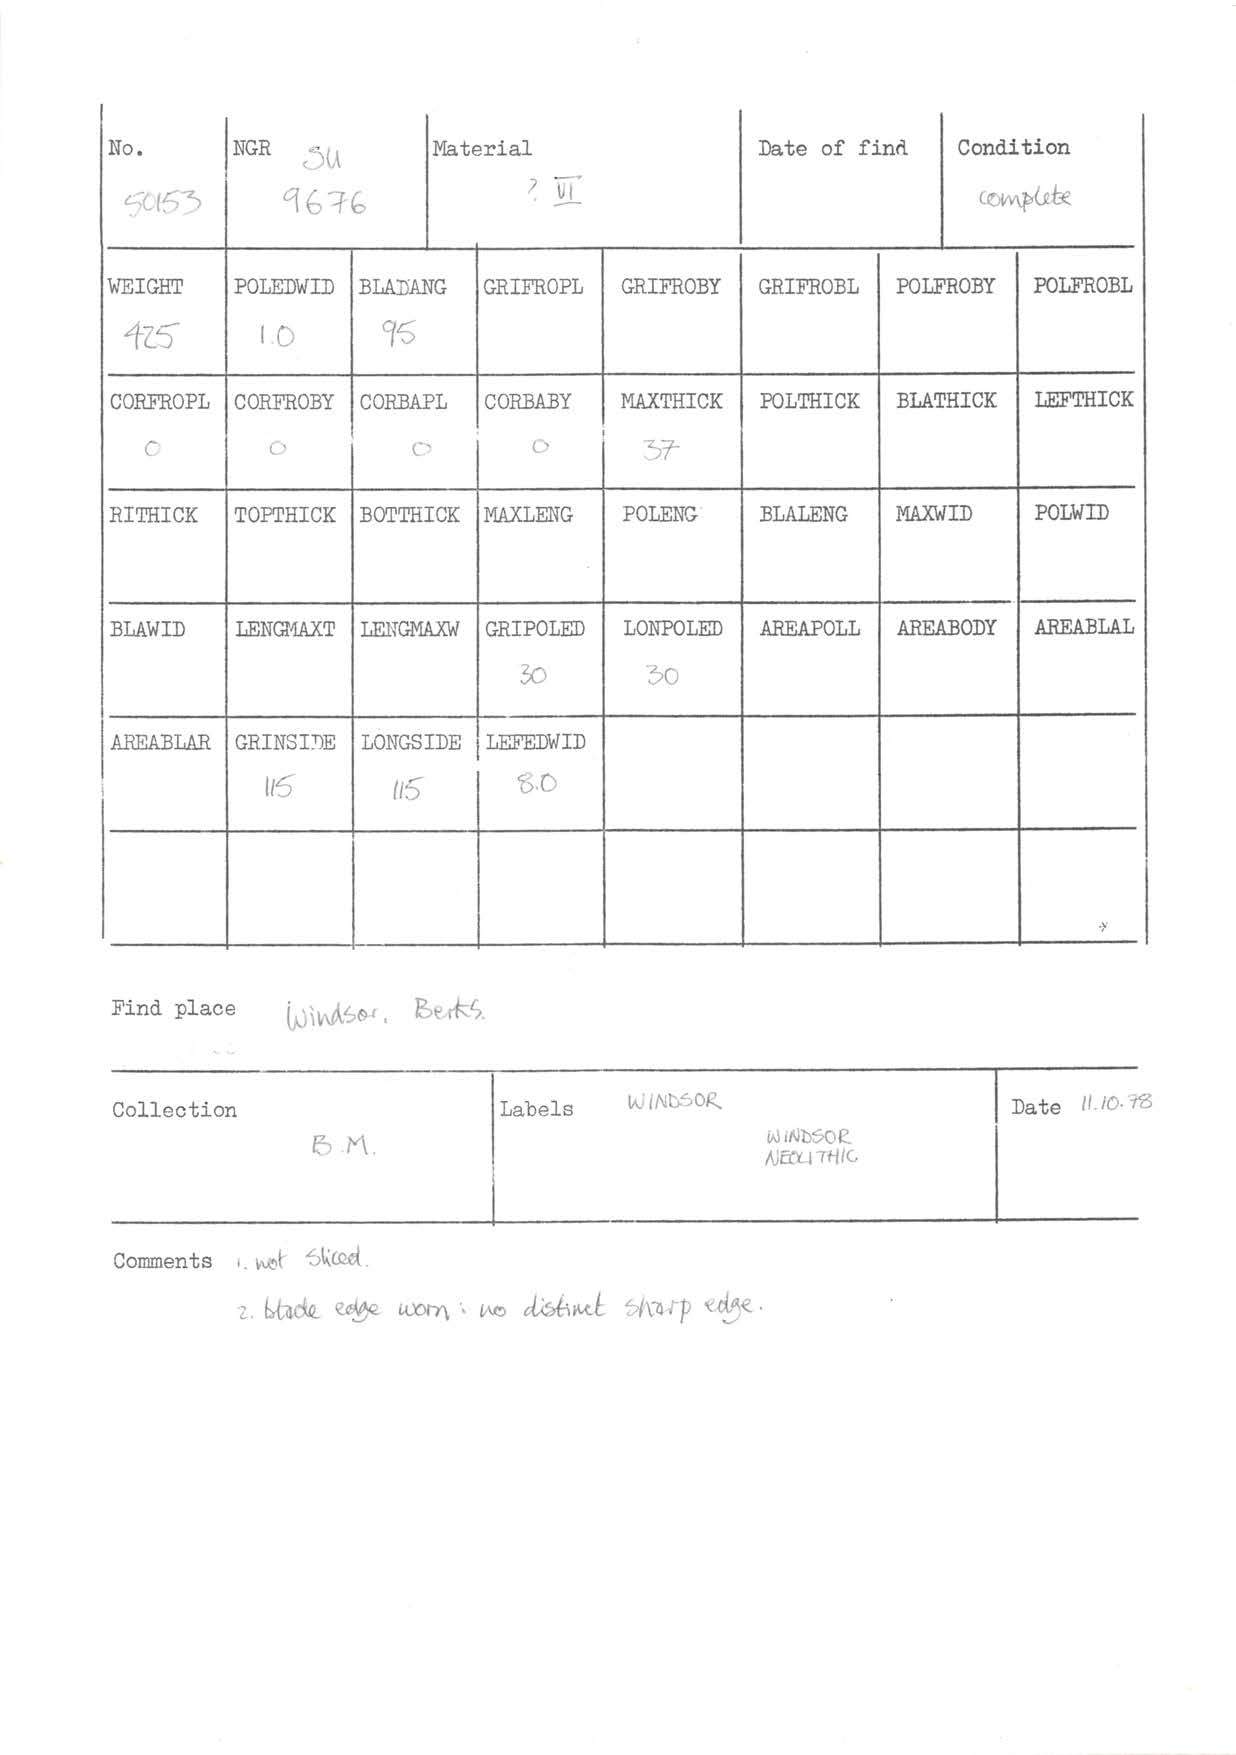 No. NGR SU Material Date of find Condition
50153 9676 ? VI complete
WEIGHT POLEDWID BLADANG GRIFROPL GRIFROBY GRIFROBL POLFROBY POLFROBL
425 1.0 95
CORFROPL CORFROBY CORBAPL CORBABY MAXTHICK POLTHICK BLATHICK LEFTHICK
0 0 0 0 37
RITHICK TOPTHICK BOTTHICK MAXLENG POLENG BLALENG MAXWID POLWID
BLAWID LENGMAXT LENGMAXW GRIPOLED LONPOLED AREAPOLL AREABODY AREABLAL
30 30
AREABLAR GRINSIDE LONGSIDE LEFEDWID
115 115 8.0
Find place Windsor, Berks.
Collection Labels WINDSOR Date 11.10.78
B.M. WINDSOR
NEOLITHIC
Comments 1. not sliced.
2. blade edge worn; no distinct sharp edge.